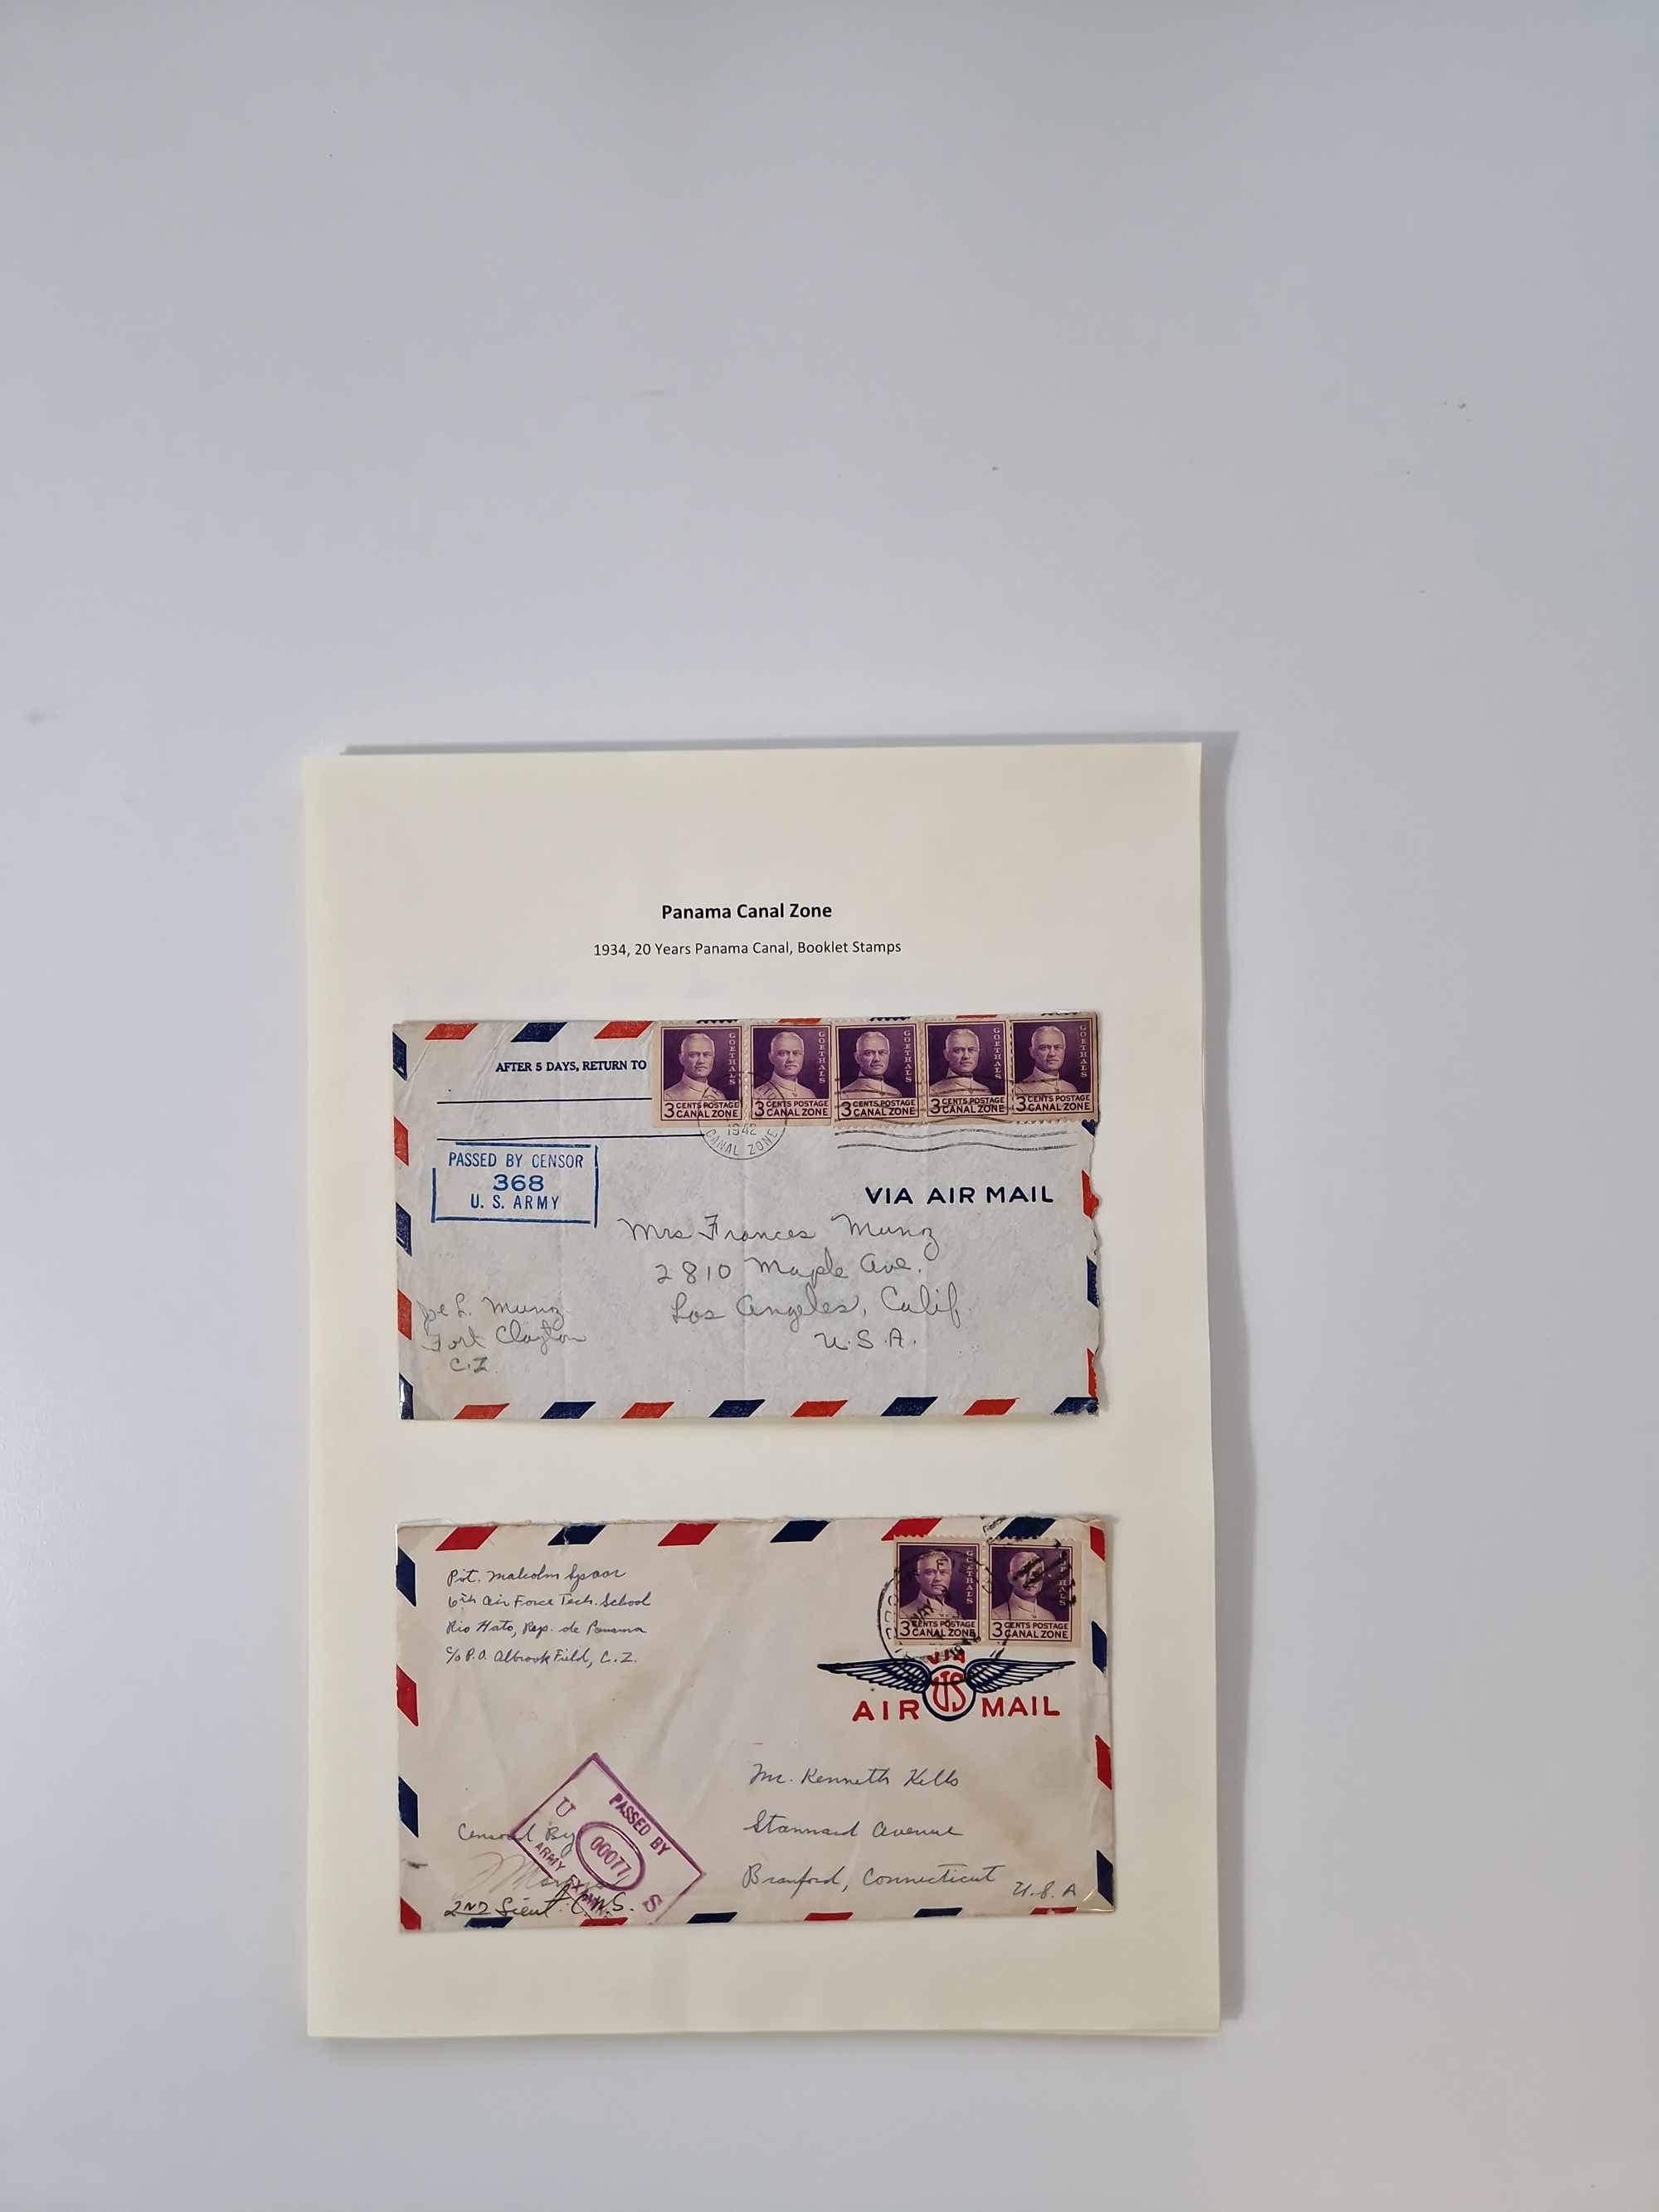 Panama Canal Zone
1934, 20 Years Panama Canal, Booklet Stamps
AFTER 5 DAYS, RETURN TO
GOETHALS
3 CENTS POSTAGE
CANAL ZONE
GOETHALS
3 CENTS POSTAGE
CANAL ZONE
GOETHALS
3 CENTS POSTAGE
CANAL ZONE
GOETHALS
3 CENTS POSTAGE
CANAL ZONE
GOETHALS
3 CENTS POSTAGE
CANAL ZONE
1942
CANAL ZONE
PASSED BY CENSOR
368
U. S. ARMY
VIA AIR MAIL
Mrs Frances Munoz
2810 Maple Ave.
Los Angeles, Calif.
U.S.A.
Joe L. Munoz
Fort Clayton
C.Z.
Pvt. Malcolm Spoor
6th Air Force Tech. School
Rio Hato, Rep. de Panama
c/o P.O. Albrook Field, C.Z.
GOETHALS
3 CENTS POSTAGE
CANAL ZONE
3 CENTS POSTAGE
CANAL ZONE
MAY
VIA
AIR US MAIL
Mr. Kenneth Kells
Stannard Avenue
Branford, Connecticut
U.S.A
PASSED BY
U 00077 S
ARMY
Censored By
2ND Lieut. A.C.W.S.